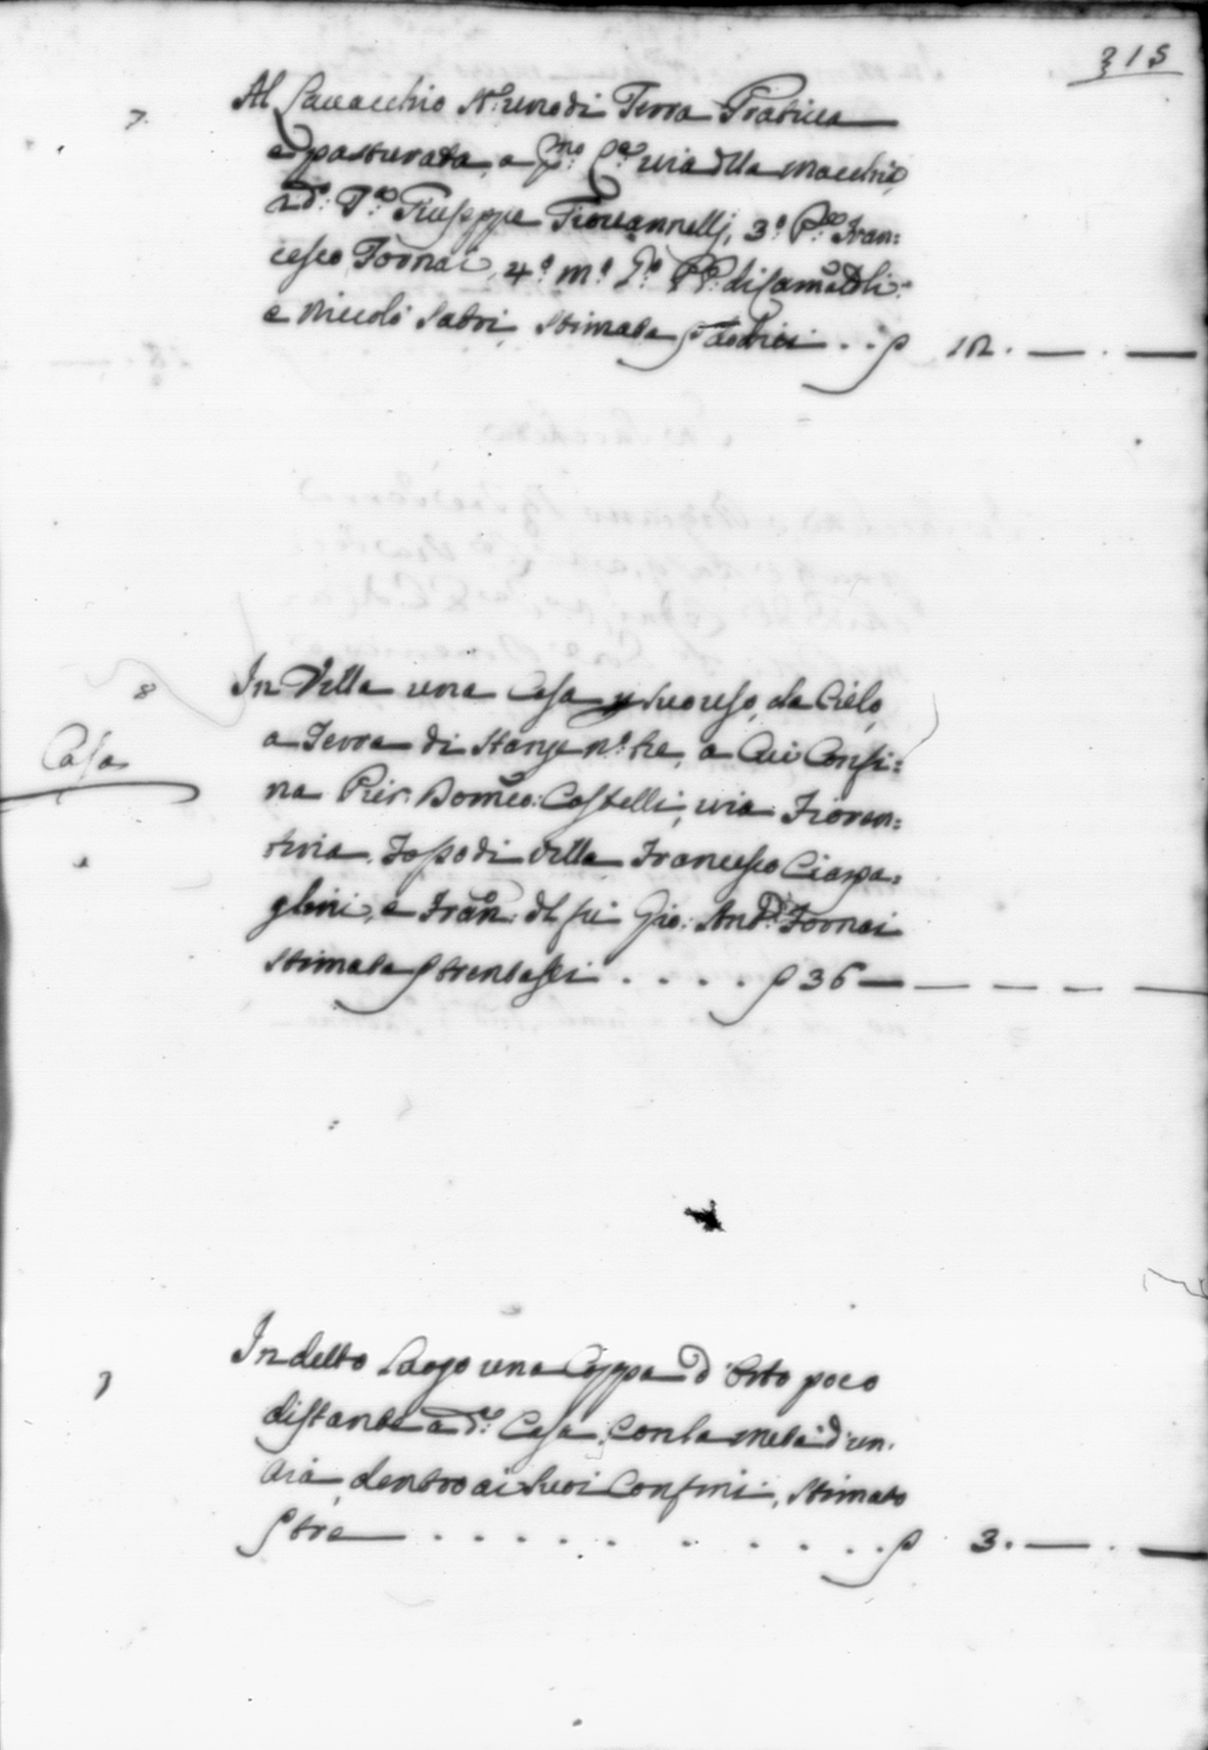 315
7. Al Lavacchio St: uno di Terra Pratiua
e pasturata, a p:mo C:a uia dlla Macchia,
2d:o P:o Giuseppe Giouannelli, 3:o P:o Fran:
cesco Fornai, 4:o m:o P:o PP: di Camaldoli
e Niccolò Satri, stimata S dodici . . S 12. — . —
8 In Villa una Casa p suo uso, da Cielo
Casa
a Terra di stanze n:o tre, a Cui Confi:
na Pier: Dom:co: Castelli, uia Fioren:
tina, Fosso di Villa Francesco Ciapa:
glini, e Fran: dl fu Gio: And:a Fornai
stimata S trentasei . . . . S 36 — — — — —
9 In detto Luogo una Coppa d'Orto poco
distante a d:a Casa, Con la metà d'un
Aia, dentro ai Suoi Confini, stimato
S tre . . . . . . . . . . S 3. — . —